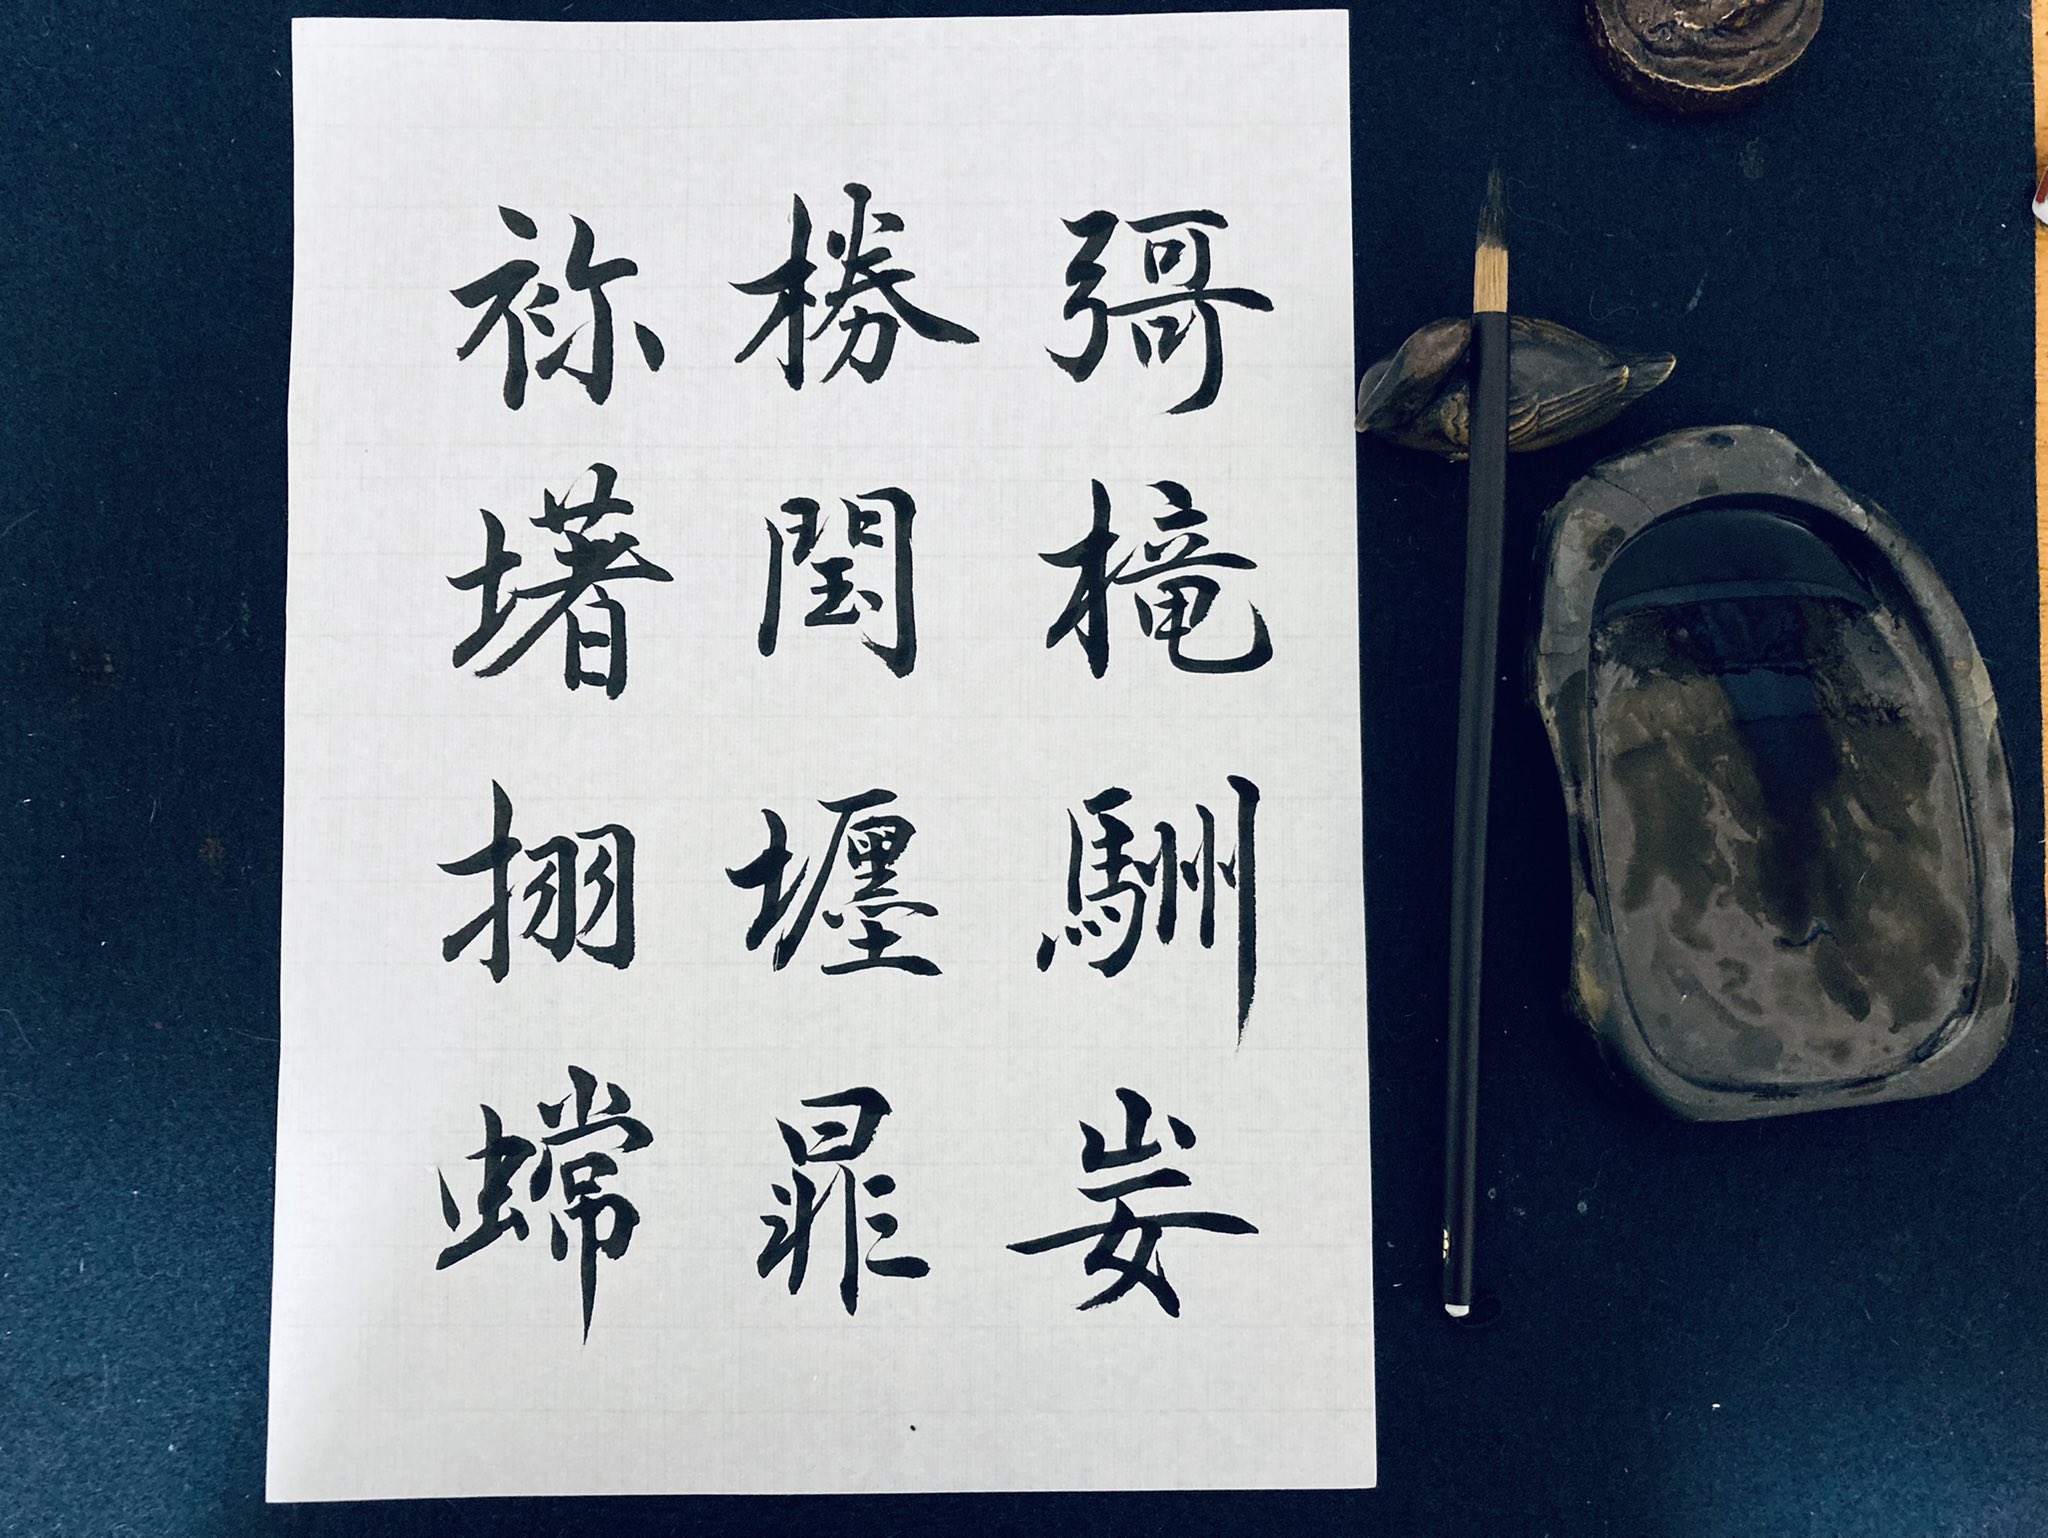 彁槞駲妛
椦閠壥暃
袮墸挧蟐